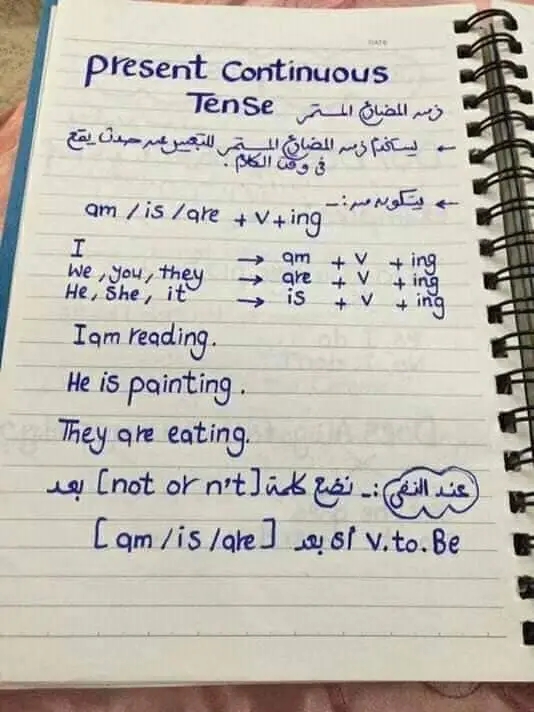 DATE
Present Continuous
Tense زمن المضارع المستمر
← يستخدم زمن المضارع المستمر للتعبير عن حدث يقع
فى وقت الكلام .
← يتكون من :-
am / is / are + v + ing
I → am + v + ing
We, you, they → are + v + ing
He, She, it → is + v + ing
I am reading.
He is painting.
They are eating.
عند النفى :- نضع كلمة [not or n't] بعد
V. to. Be أى بعد [am / is / are]